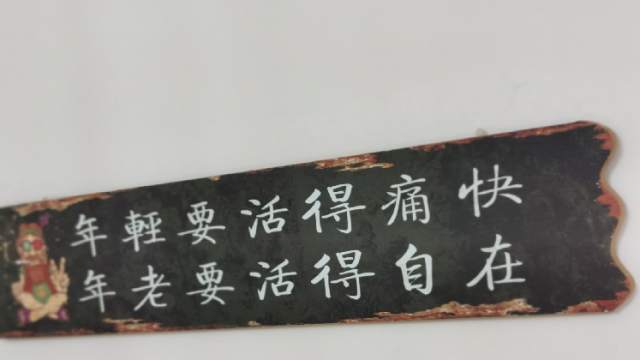 年輕要活得痛快
年老要活得自在